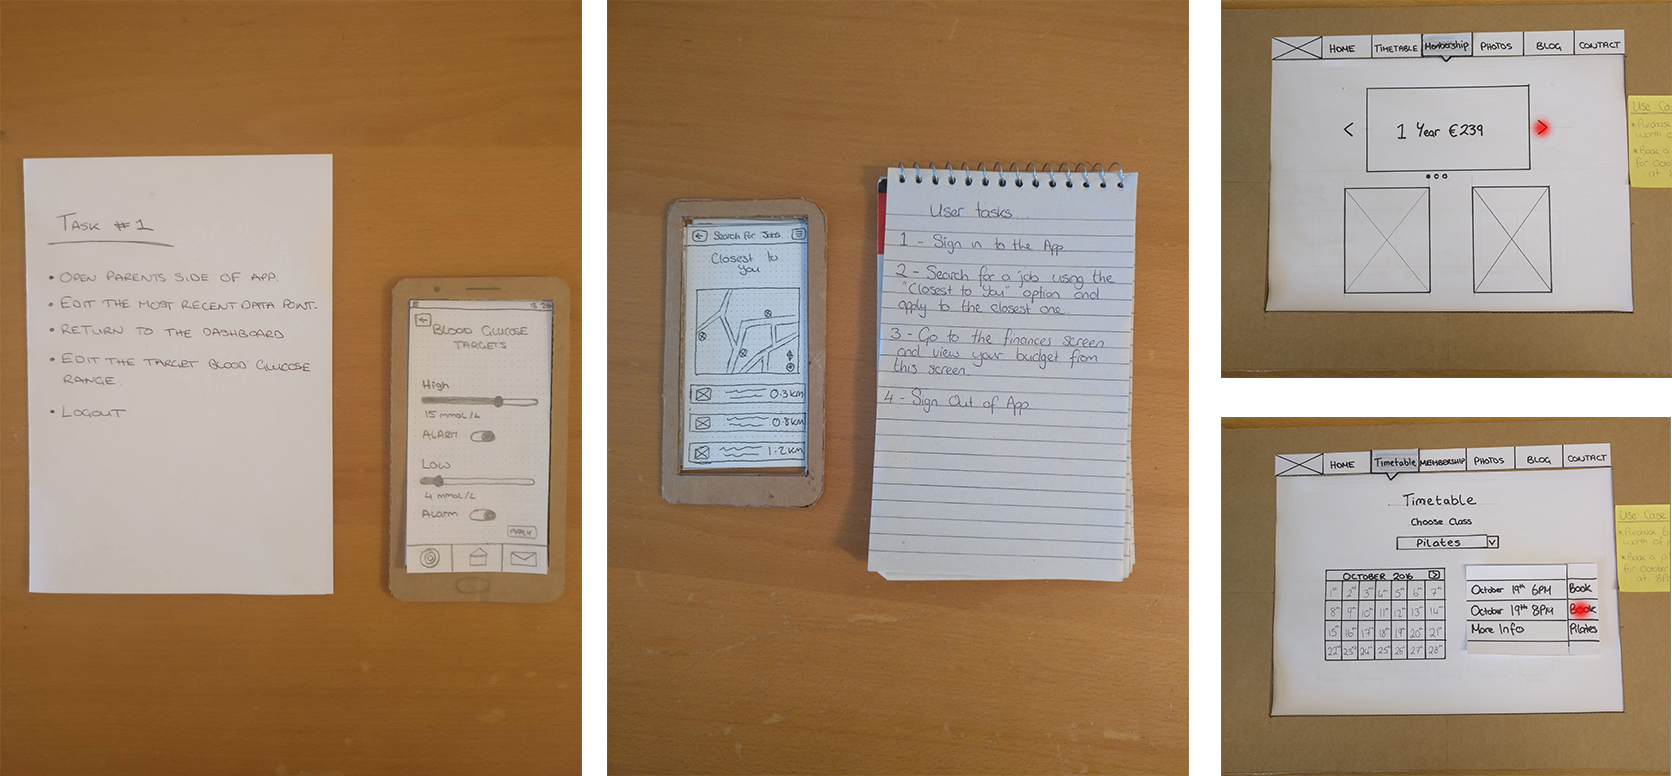 TASK #1
• OPEN PARENTS SIDE OF APP.
• EDIT THE MOST RECENT DATA POINT.
• RETURN TO THE DASHBOARD
• EDIT THE TARGET BLOOD GLUCOSE
RANGE.
• LOGOUT
BLOOD GLUCOSE
TARGETS
High
15 mmol/L
ALARM
Low
4 mmol/L
Alarm
APPLY
Search for Jobs
Closest to
you
0.3km
0.8km
1.2km
User tasks
1 - Sign in to the App
2 - Search for a job using the
"Closest to You" option and
apply to the closest one.
3 - Go to the finances screen
and view your budget from
this screen.
4 - Sign Out of App
HOME TIMETABLE Membership PHOTOS BLOG CONTACT
< 1 Year €239 >
Use Ca
• Purchase
worth o
• Book a
for Octobe
at 8
HOME Timetable MEMBERSHIP PHOTOS BLOG CONTACT
Timetable
Choose Class
Pilates
OCTOBER 2016 >
1st 2nd 3rd 4th 5th 6th 7th
8th 9th 10th 11th 12th 13th 14th
15th 16th 17th 18th 19th 20th 21st
22nd 23rd 24th 25th 26th 27th 28th
October 19th 6PM Book
October 19th 8PM Book
More Info Pilates
Use Case
• Purchase
worth of
• Book a p
for October
at 8P